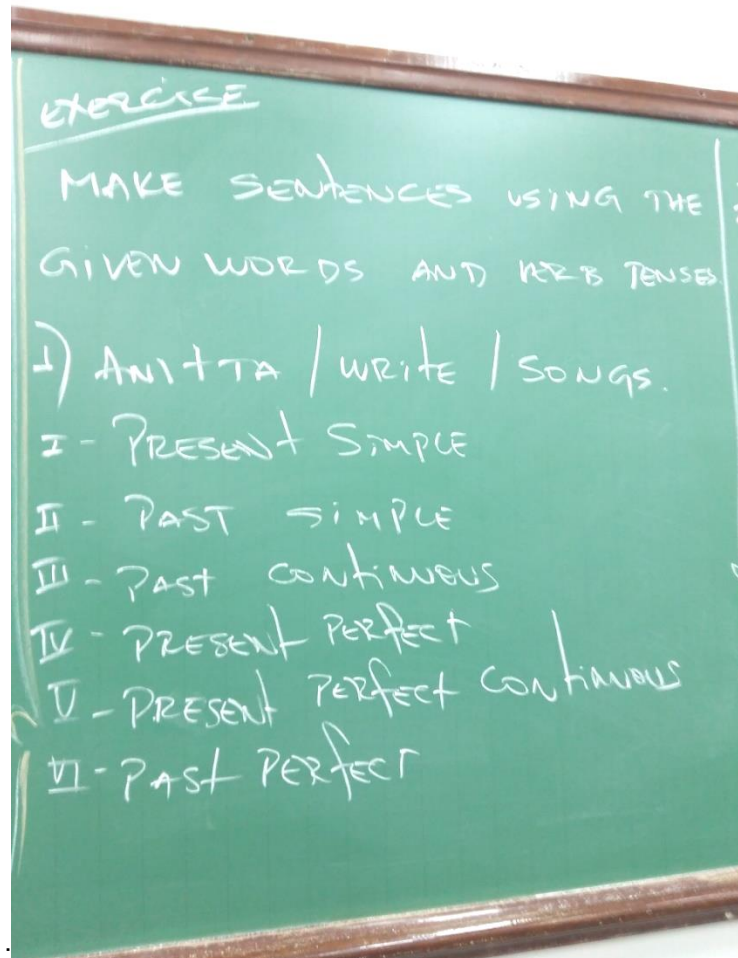 EXERCISE
MAKE SENTENCES USING THE
GIVEN WORDS AND VERB TENSES.
1) ANITTA / WRITE / SONGS.
I - PRESENT SIMPLE
II - PAST SIMPLE
III - PAST CONTINUOUS
IV - PRESENT PERFECT
V - PRESENT PERFECT CONTINUOUS
VI - PAST PERFECT